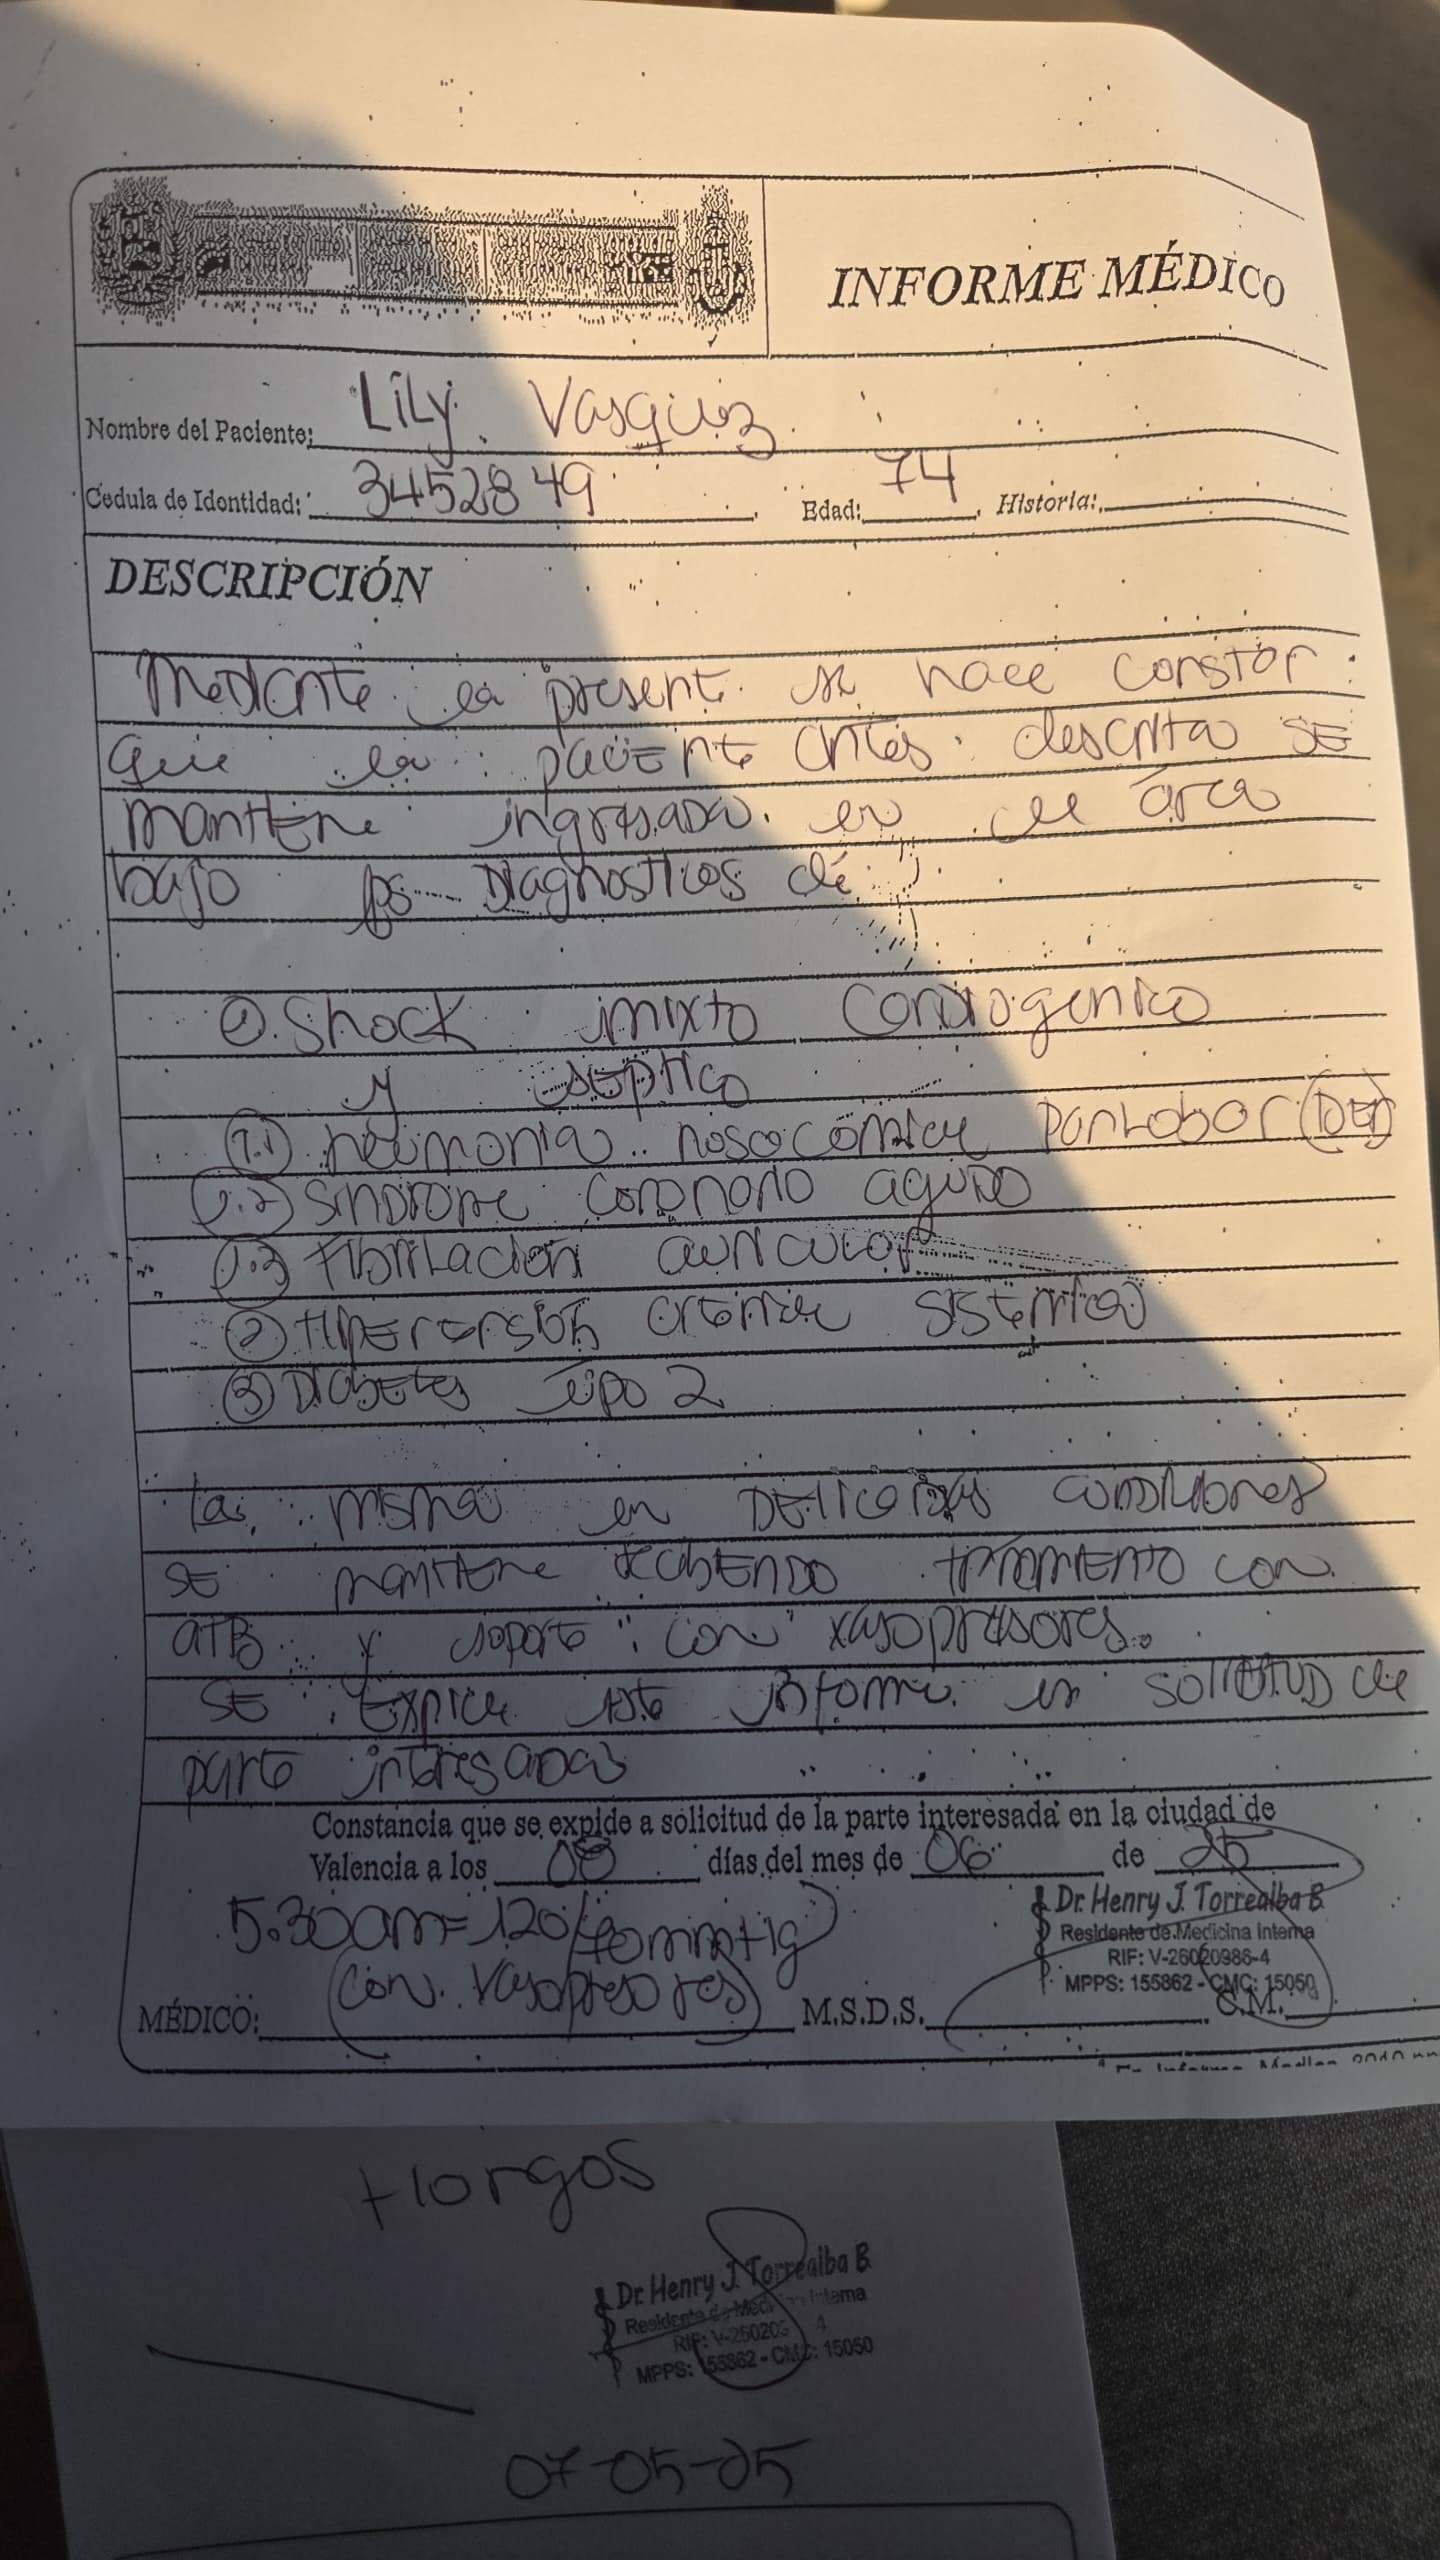 INFORME MÉDICO
Nombre del Paciente: Lily Vasquez
Cedula de Identidad: 3452849 Edad: 74 Historia:
DESCRIPCIÓN
Mediante la presente se hace constar
que la paciente antes descrita se
mantiene ingresada en el área
bajo los Diagnosticos de:
1. Shock mixto Cardiogenico
y septico
1.1) neumonia nosocomial Panlobar (Der)
1.2) Sindrome coronario agudo
1.3) Fibrilación auricular
2) Hipertensión arterial sistemica
3) Diabetes tipo 2
La misma en Delicadas condiciones
se mantiene recibiendo tratamiento con
ATB y soporte con vasopresores.
Se expide este informe en solicitud de
parte interesada
Constancia que se expide a solicitud de la parte interesada en la ciudad de
Valencia a los días del mes de 06 de 25
5:30am = 120/ mmHg
(con vasopresores)
Dr. Henry J. Torrealba B.
Residente de Medicina Interna
RIF: V-26020986-4
MPPS: 155862 - CMC: 15050
MÉDICO: M.S.D.S. C.M.
Dr. Henry J. Torrealba B.
Residente de Medicina Interna
RIF: V-26020
MPPS: 155862 - CMC: 15050
07-05-25